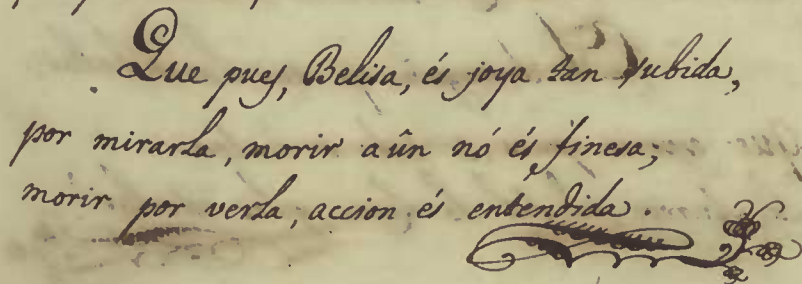 Que pues, Belisa, és joya tan subida,
por mirarla, morir aûn nó és finesa;
morir por verla, accion és entendida.